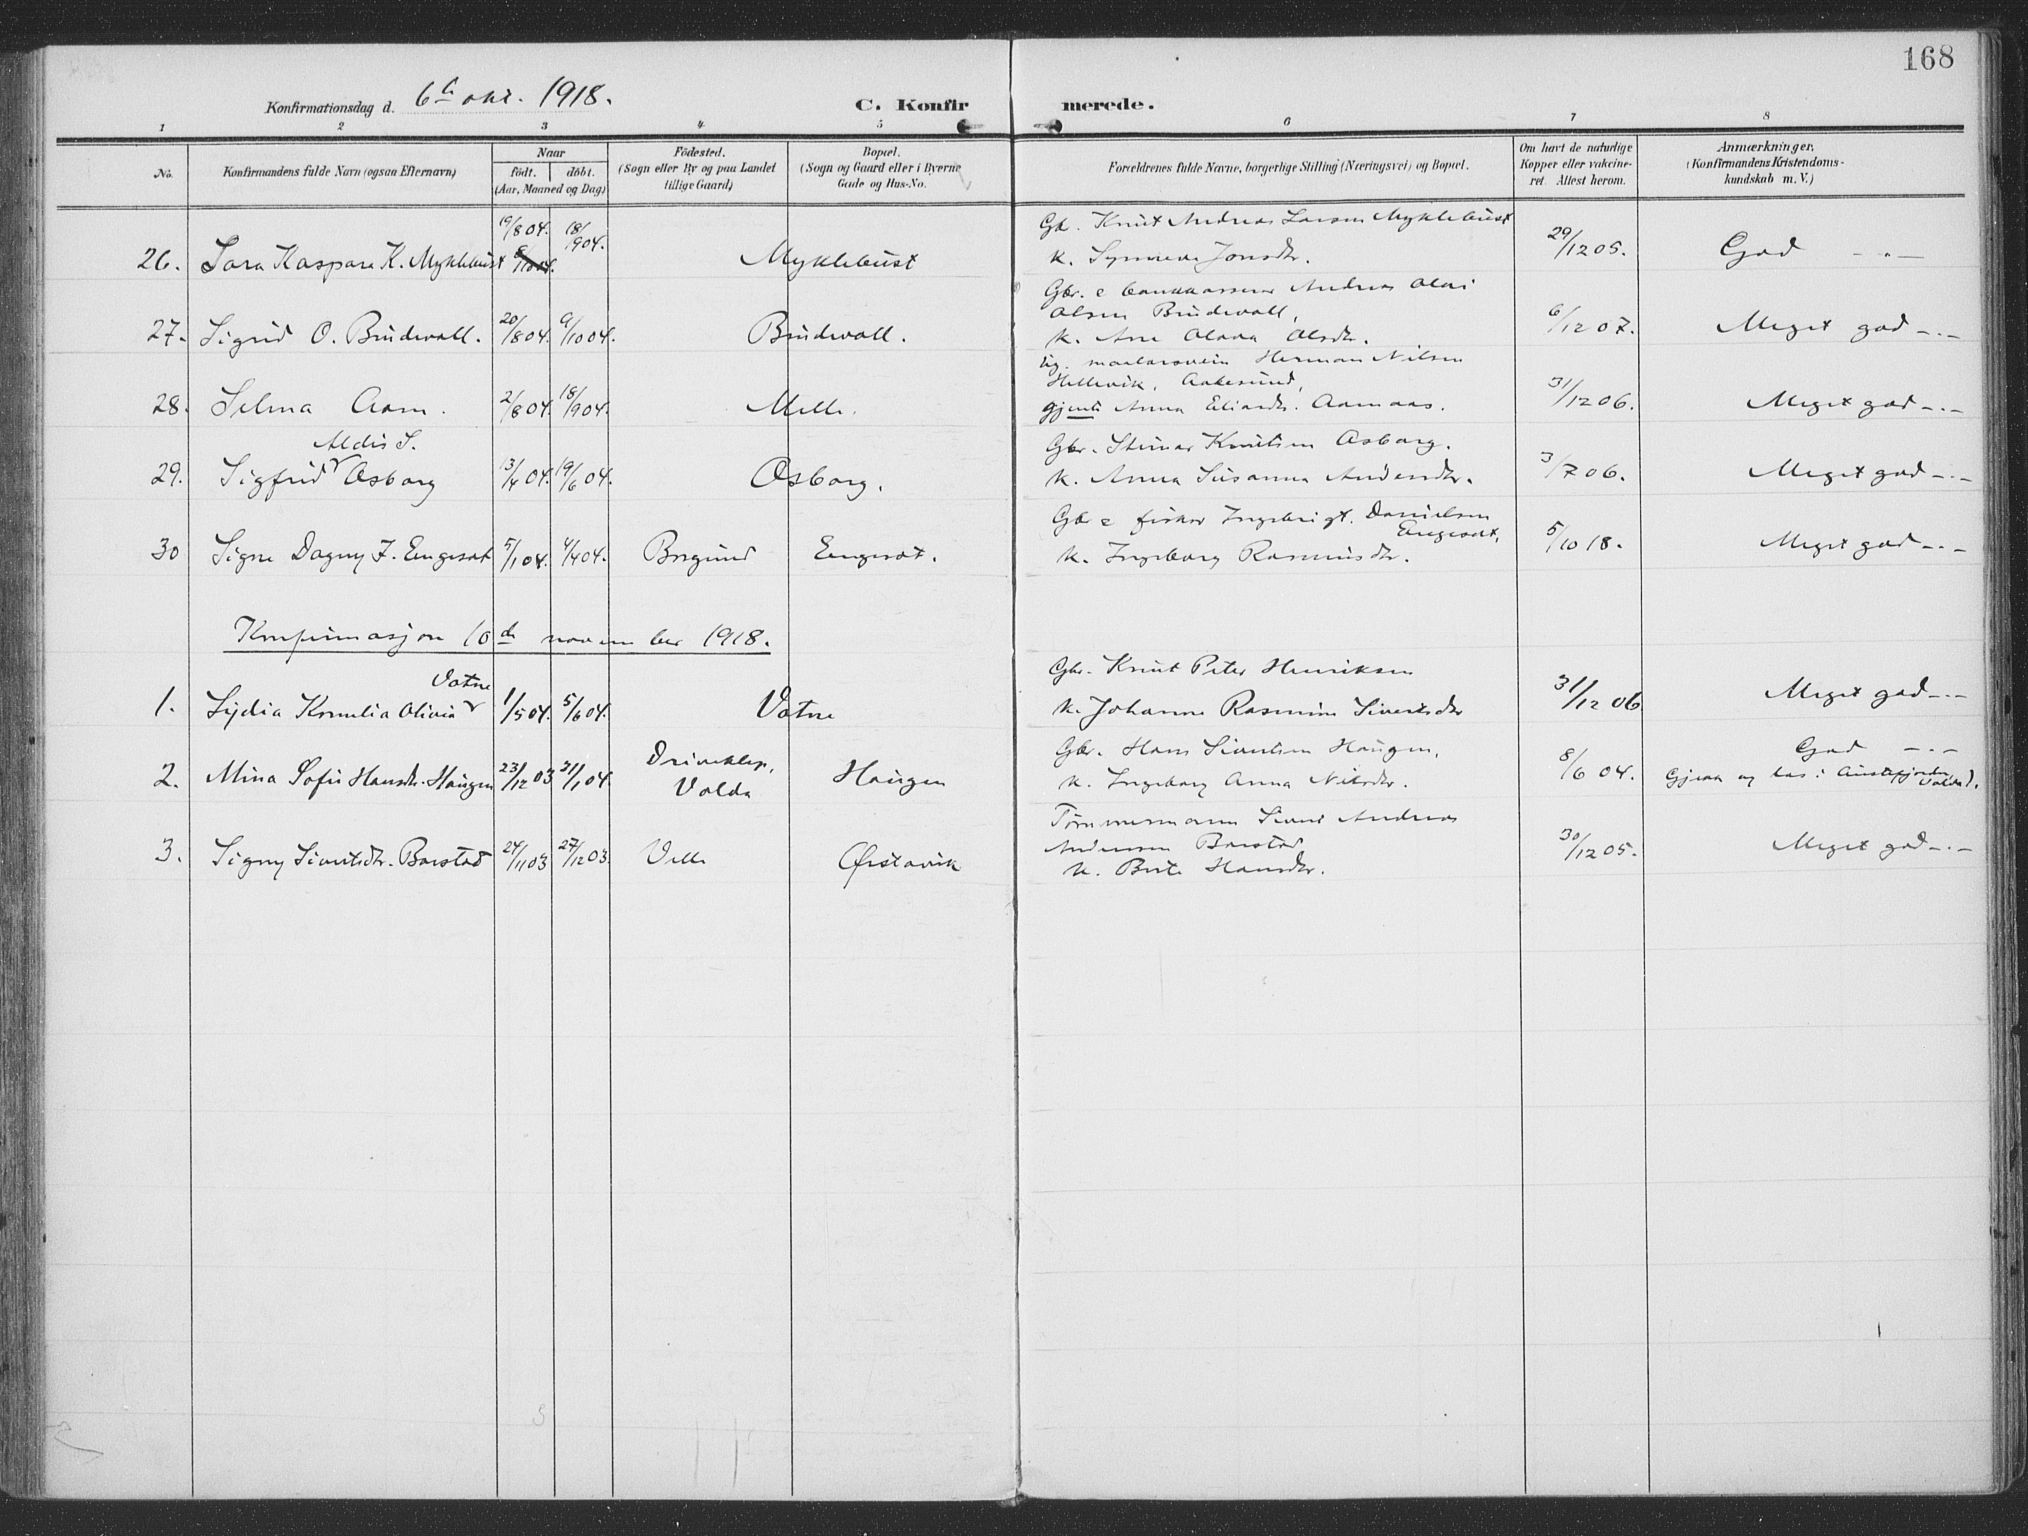 168
Konfirmationsdag d. 6te okt. 1918.
C. Konfirmerede.
1 2 3 4 5 6 7 8
No. Konfirmandens fulde Navn (ogsaa Efternavn) Naar født. døbt. (Aar, Maaned og Dag) Fødested. (Sogn eller By og paa Landet tillige Gaard) Bopæl. (Sogn og Gaard eller i Byerne Gade og Hus-No. Forældrenes fulde Navne, borgerlige Stilling (Næringsvei) og Bopæl. Om havt de naturlige Kopper eller vakcineret. Attest herom. Anmærkninger. (Konfirmandens Kristendomskundskab m. V.)
Gbr. Knut Andreas Larsen Myklebust
26. Sara Kaspara K. Myklebust 19/8 04. 18/9 04. Myklebust k. Synneve Jonsdtr. 29/12 05. God -"-
Gbr. & Andreas Olai
Olsen Brudevoll,
27. Sigrid O. Brudevoll. 20/8 04. 9/10 04. Brudevoll. k. Ane Olava Olsdtr. 6/12 07. Meget god -"-
Herman Nilsen
Hellevik, Aalesund,
28. Selma Aam. 2/8 04. 18/9 04. Melle. gjente Anna Eliasdtr. Aamaas. 31/12 06. Meget god -"-
Aldis S. Gbr. Steinar Knutsen Osborg.
29. Sigfrid Osborg 13/4 04. 19/6 04. Osborg. k. Anna Susanna Andersdtr. 3/7 06. Meget god -"-
Gbr & fisker Ingebrigt Danielsen
Engeset,
30 Signe Dagny I. Engeset 5/1 04. 4/4 04. Borgund Engeset. k. Ingeborg Rasmusdtr. 5/10 18. Meget god -"-
Konfirmasjon 10de november 1918.
Vatne Gbr. Knut Peter Henriksen
1. Lydia Kornelia Olivia 1/5 04. 5/6 04. Vatne k. Johanne Rasmine Sivertsdtr 31/12 06 Meget god -"-
Gbr. Hans Sivertsen Haugen,
2. Mina Sofie Hansdtr. Haugen 23/12 03 31/1 04. Driveklep, Volda Haugen k. Ingeborg Anna Nilsdtr. 8/6 04. God -"-
Gjekk og las i Austefjorden, Volda).
Tømmermann Sivert Andreas
Andersen Barstad
3. Signy Sivertsdtr. Barstad 24/11 03 27/12 03. Velle Ørstavik k. Berte Hansdtr. 30/12 05. Meget god -"-